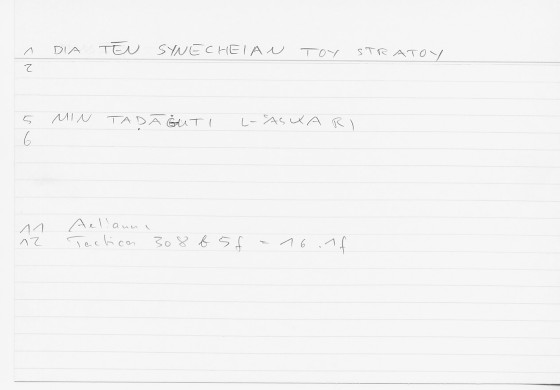 1 DIA TĒN SYNECHEIAN TOY STRATOY
2
5 MIN TAḌĀĠUṬI L-ʿASKARI
6
11 Aelianus
12 Tactica 308 b 5f = 16.1f